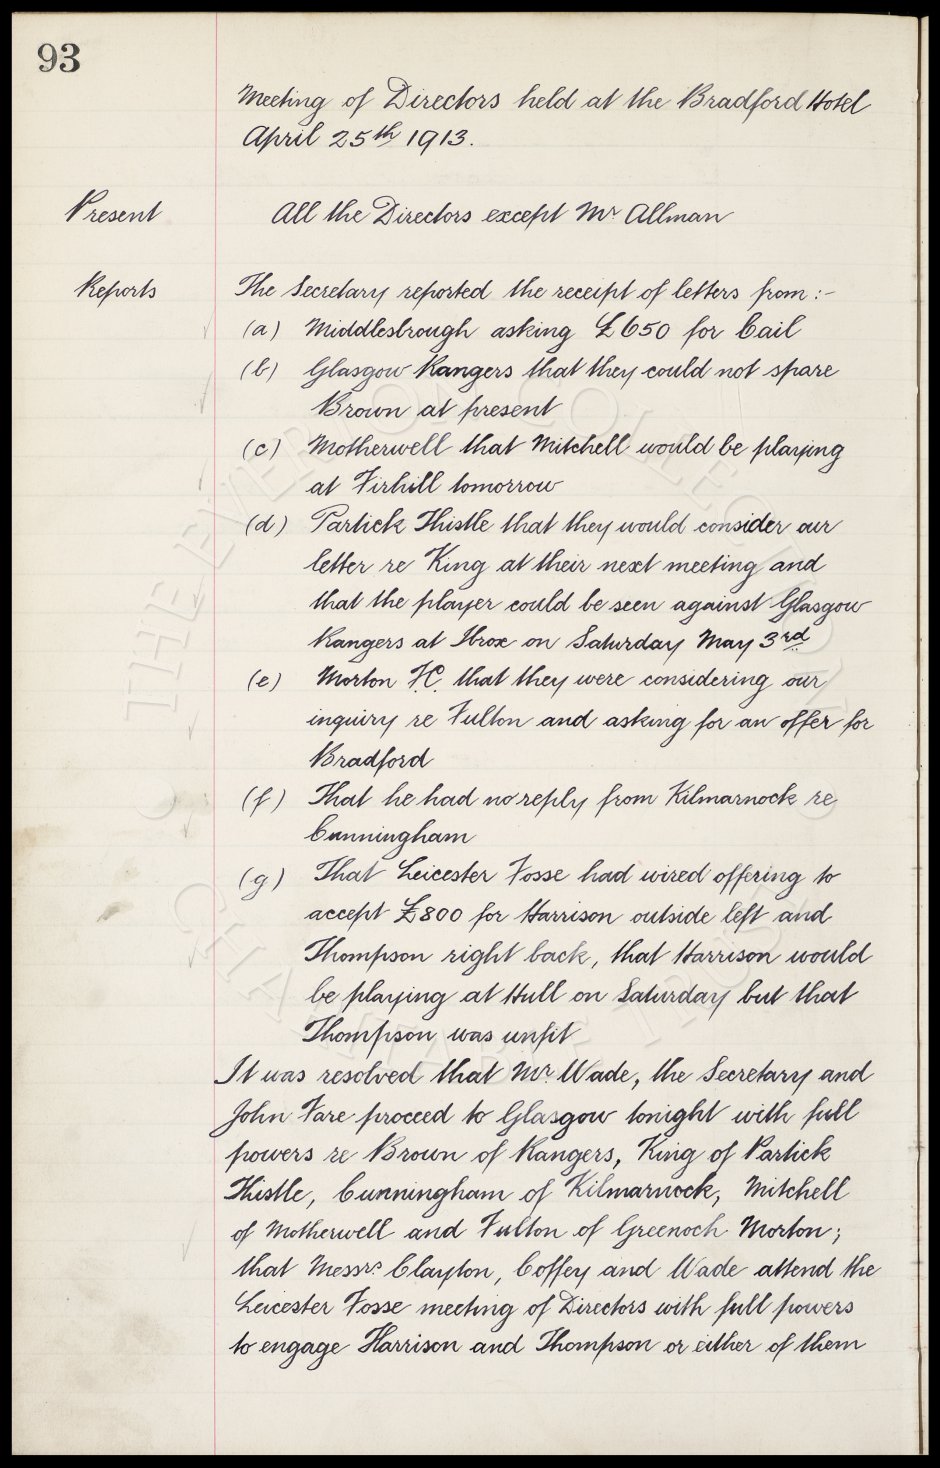 93
Meeting of Directors held at the Bradford Hotel
April 25th 1913.
Present
All the Directors except Mr Allman
Reports
The Secretary reported the receipt of letters from :-
(a) Middlesbrough asking £650 for Cail
(b) Glasgow Rangers that they could not spare
Brown at present
(c) Motherwell that Mitchell would be playing
at Firhill tomorrow
(d) Partick Thistle that they would consider our
letter re King at their next meeting and
that the player could be seen against Glasgow
Rangers at Ibrox on Saturday May 3rd
(e) Morton F.C. that they were considering our
inquiry re Fulton and asking for an offer for
Bradford
(f) That he had no reply from Kilmarnock re
Cunningham
(g) That Leicester Fosse had wired offering to
accept £800 for Harrison outside left and
Thompson right back, that Harrison would
be playing at Hull on Saturday but that
Thompson was unfit
It was resolved that Mr Wade, the Secretary and
John Fare proceed to Glasgow tonight with full
powers re Brown of Rangers, King of Partick
Thistle, Cunningham of Kilmarnock, Mitchell
of Motherwell and Fulton of Greenoch Morton;
that Messrs Clayton, Coffey and Wade attend the
Leicester Fosse meeting of Directors with full powers
to engage Harrison and Thompson or either of them
THE EVERTON COLLECTION
CHARITABLE TRUST